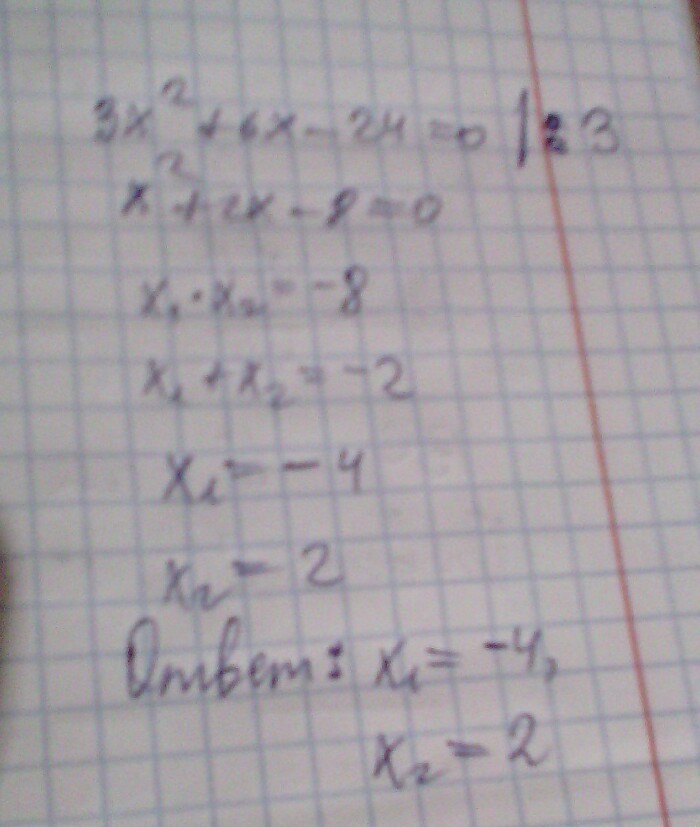 3x² + 6x - 24 = 0 | : 3
x² + 2x - 8 = 0
x₁ · x₂ = -8
x₁ + x₂ = -2
x₁ = -4
x₂ = 2
Ответ: x₁ = -4,
x₂ = 2